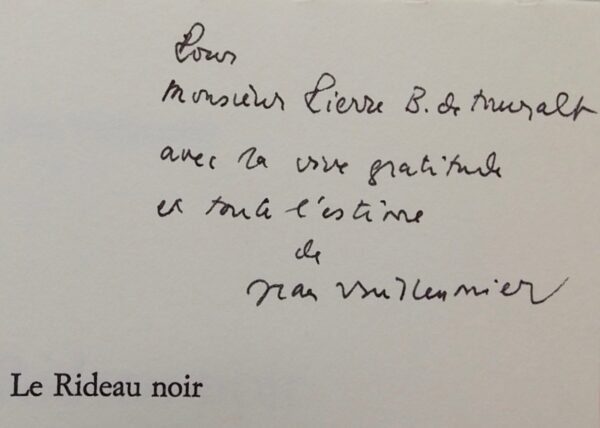 Pour
Monsieur Pierre B. de Muralt
avec la vive gratitude
et toute l'estime
de
Jean Vuilleumier
Le Rideau noir